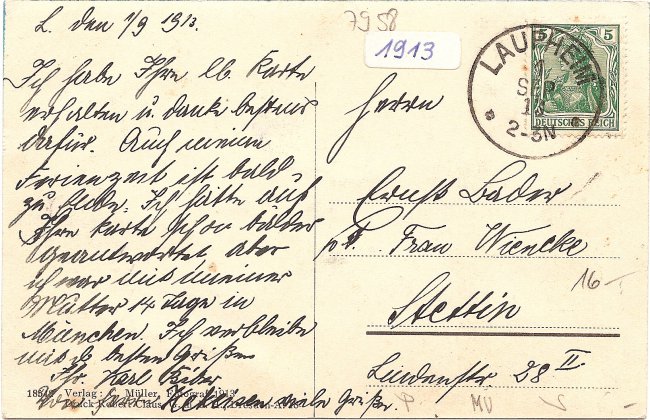 L. den 1/9 1913.
Ich habe Ihre lb. Karte
erhalten u. danke bestens
dafür. Auch meine
Ferienzeit ist bald
zu Ende. Ich hätte auf
Ihre Karte schon
geantwortet, aber
ich war mit meiner
Mutter 14 Tage in
München. Ich verbleibe
mit d. besten Grüßen
Ihr Karl
viele Grüße
7958
1913
LAUPHEIM
1
SEP
13
2-3N
5
5
DEUTSCHES REICH
Herrn
Ernst Bader
p. A. Frau Wiencke
Stettin
Lindenstr 28 II
16-
Verlag: C. Müller, Fotograf 1913
MU